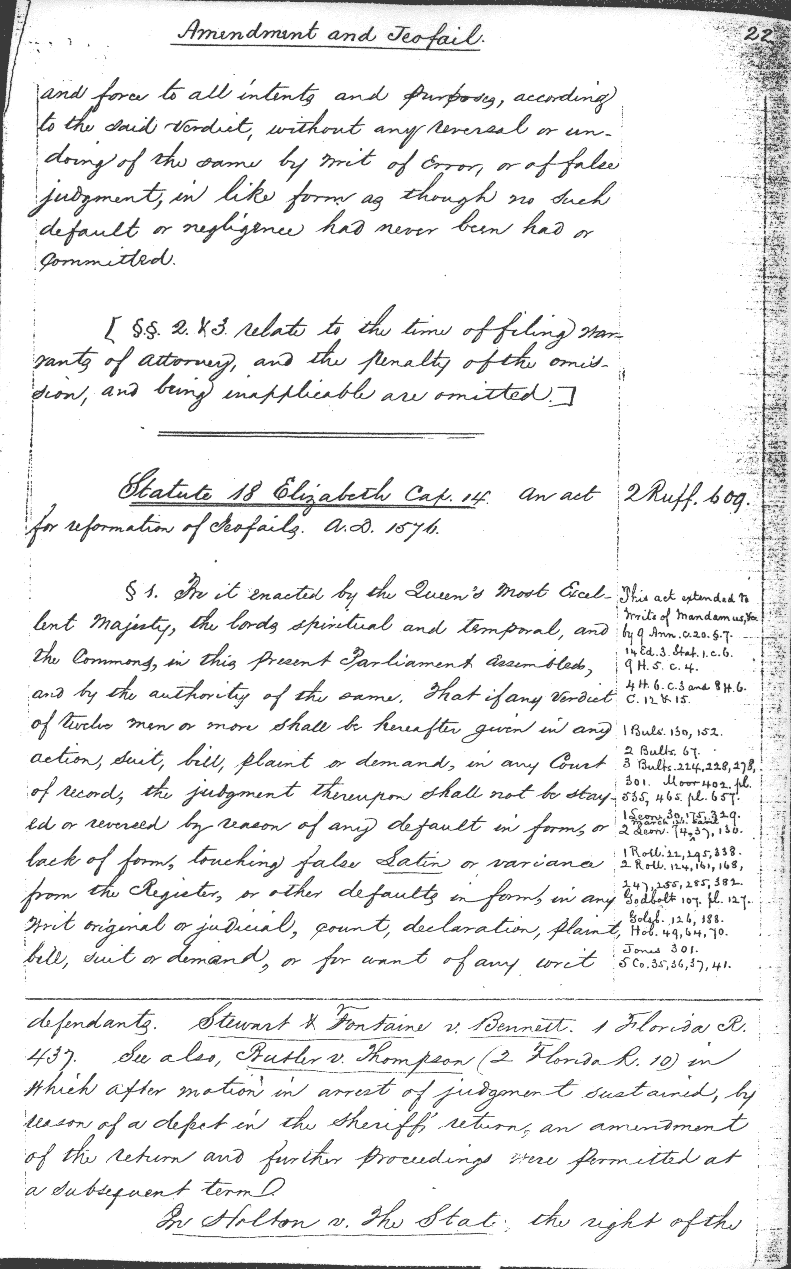 Amendment and Jeofail.
22
and force to all intents and purposes, according
to the said verdict, without any reversal or un-
doing of the same by writ of Error, or of false
judgment, in like form as though no such
default or negligence had never been had or
committed.
[ §§. 2. & 3. relate to the time of filing war-
rants of attorney, and the penalty of the omis-
sion, and being inapplicable are omitted.]
Statute 18 Elizabeth Cap. 14. An act
for reformation of Jeofails. A.D. 1576.
2 Ruff. 609.
§ 1. Be it enacted by the Queen's Most Excel-
lent Majesty, the lords spiritual and temporal, and
the Commons, in this present Parliament assembled,
and by the authority of the same. That if any verdict
of twelve men or more shall be hereafter given in any
action, suit, bill, plaint or demand, in any Court
of record, the judgment thereupon shall not be stay-
ed or reversed by reason of any default in form, or
lack of form, touching false Latin or variance
from the Register, or other defaults in form, in any
writ original or judicial, count, declaration, plaint,
bill, suit or demand, or for want of any writ
This act extended to
Writs of Mandamus, &c
by 9 Ann. c. 20. §. 7.
14 Ed. 3. Stat. 1. c. 6.
9 H. 5. c. 4.
4 H. 6. C. 3 and 8 H. 6.
C. 12 & 15.
1 Buls. 130, 152.
2 Bults. 67.
3 Bults. 224, 228, 278,
301. Moor 402, pl.
535, 465. pl. 657.
1 Leon. 30, 175, 329.
2 Leon. 74, 37, 130.
1 Roll. 22, 295, 338.
2 Roll. 124, 161, 168,
247, 255, 285, 382.
Godbolt 107. pl. 127.
Golsb. 126, 188.
Hob. 49, 64, 70.
Jones 301.
5 Co. 35, 36, 37, 41.
defendants. Stewart & Fontaine v. Bennett. 1 Florida R.
437. See also, Butler v. Thompson (2 Florida R. 10) in
which after motion in arrest of judgment sustained, by
reason of a defect in the sheriff's return, an amendment
of the return and further proceedings were permitted at
a subsequent term.
In Holton v. The State, the right of the